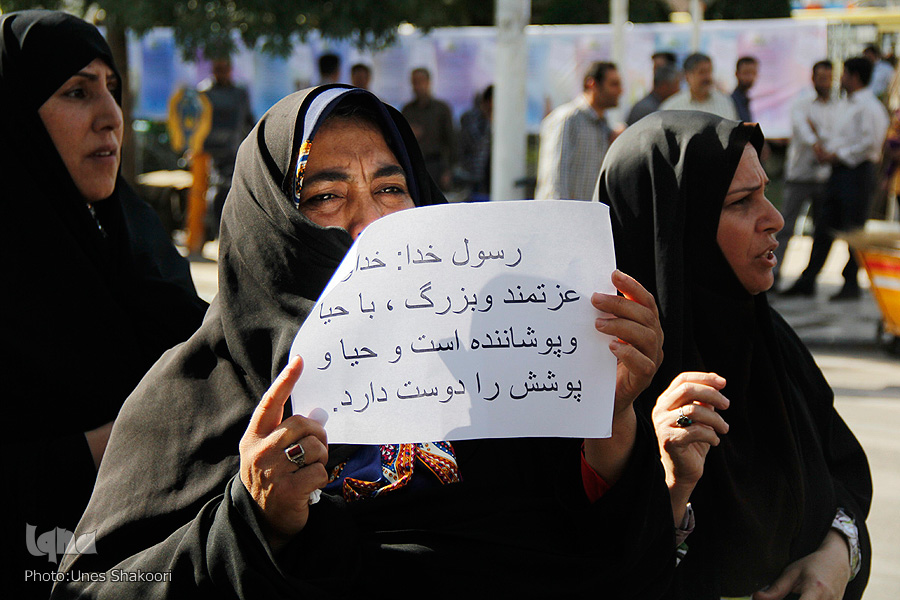 رسول خدا: خدای
عزتمند وبزرگ ، با حیا
وپوشاننده است و حیا و
پوشش را دوست دارد.
iqna
Photo:Unes Shakoori